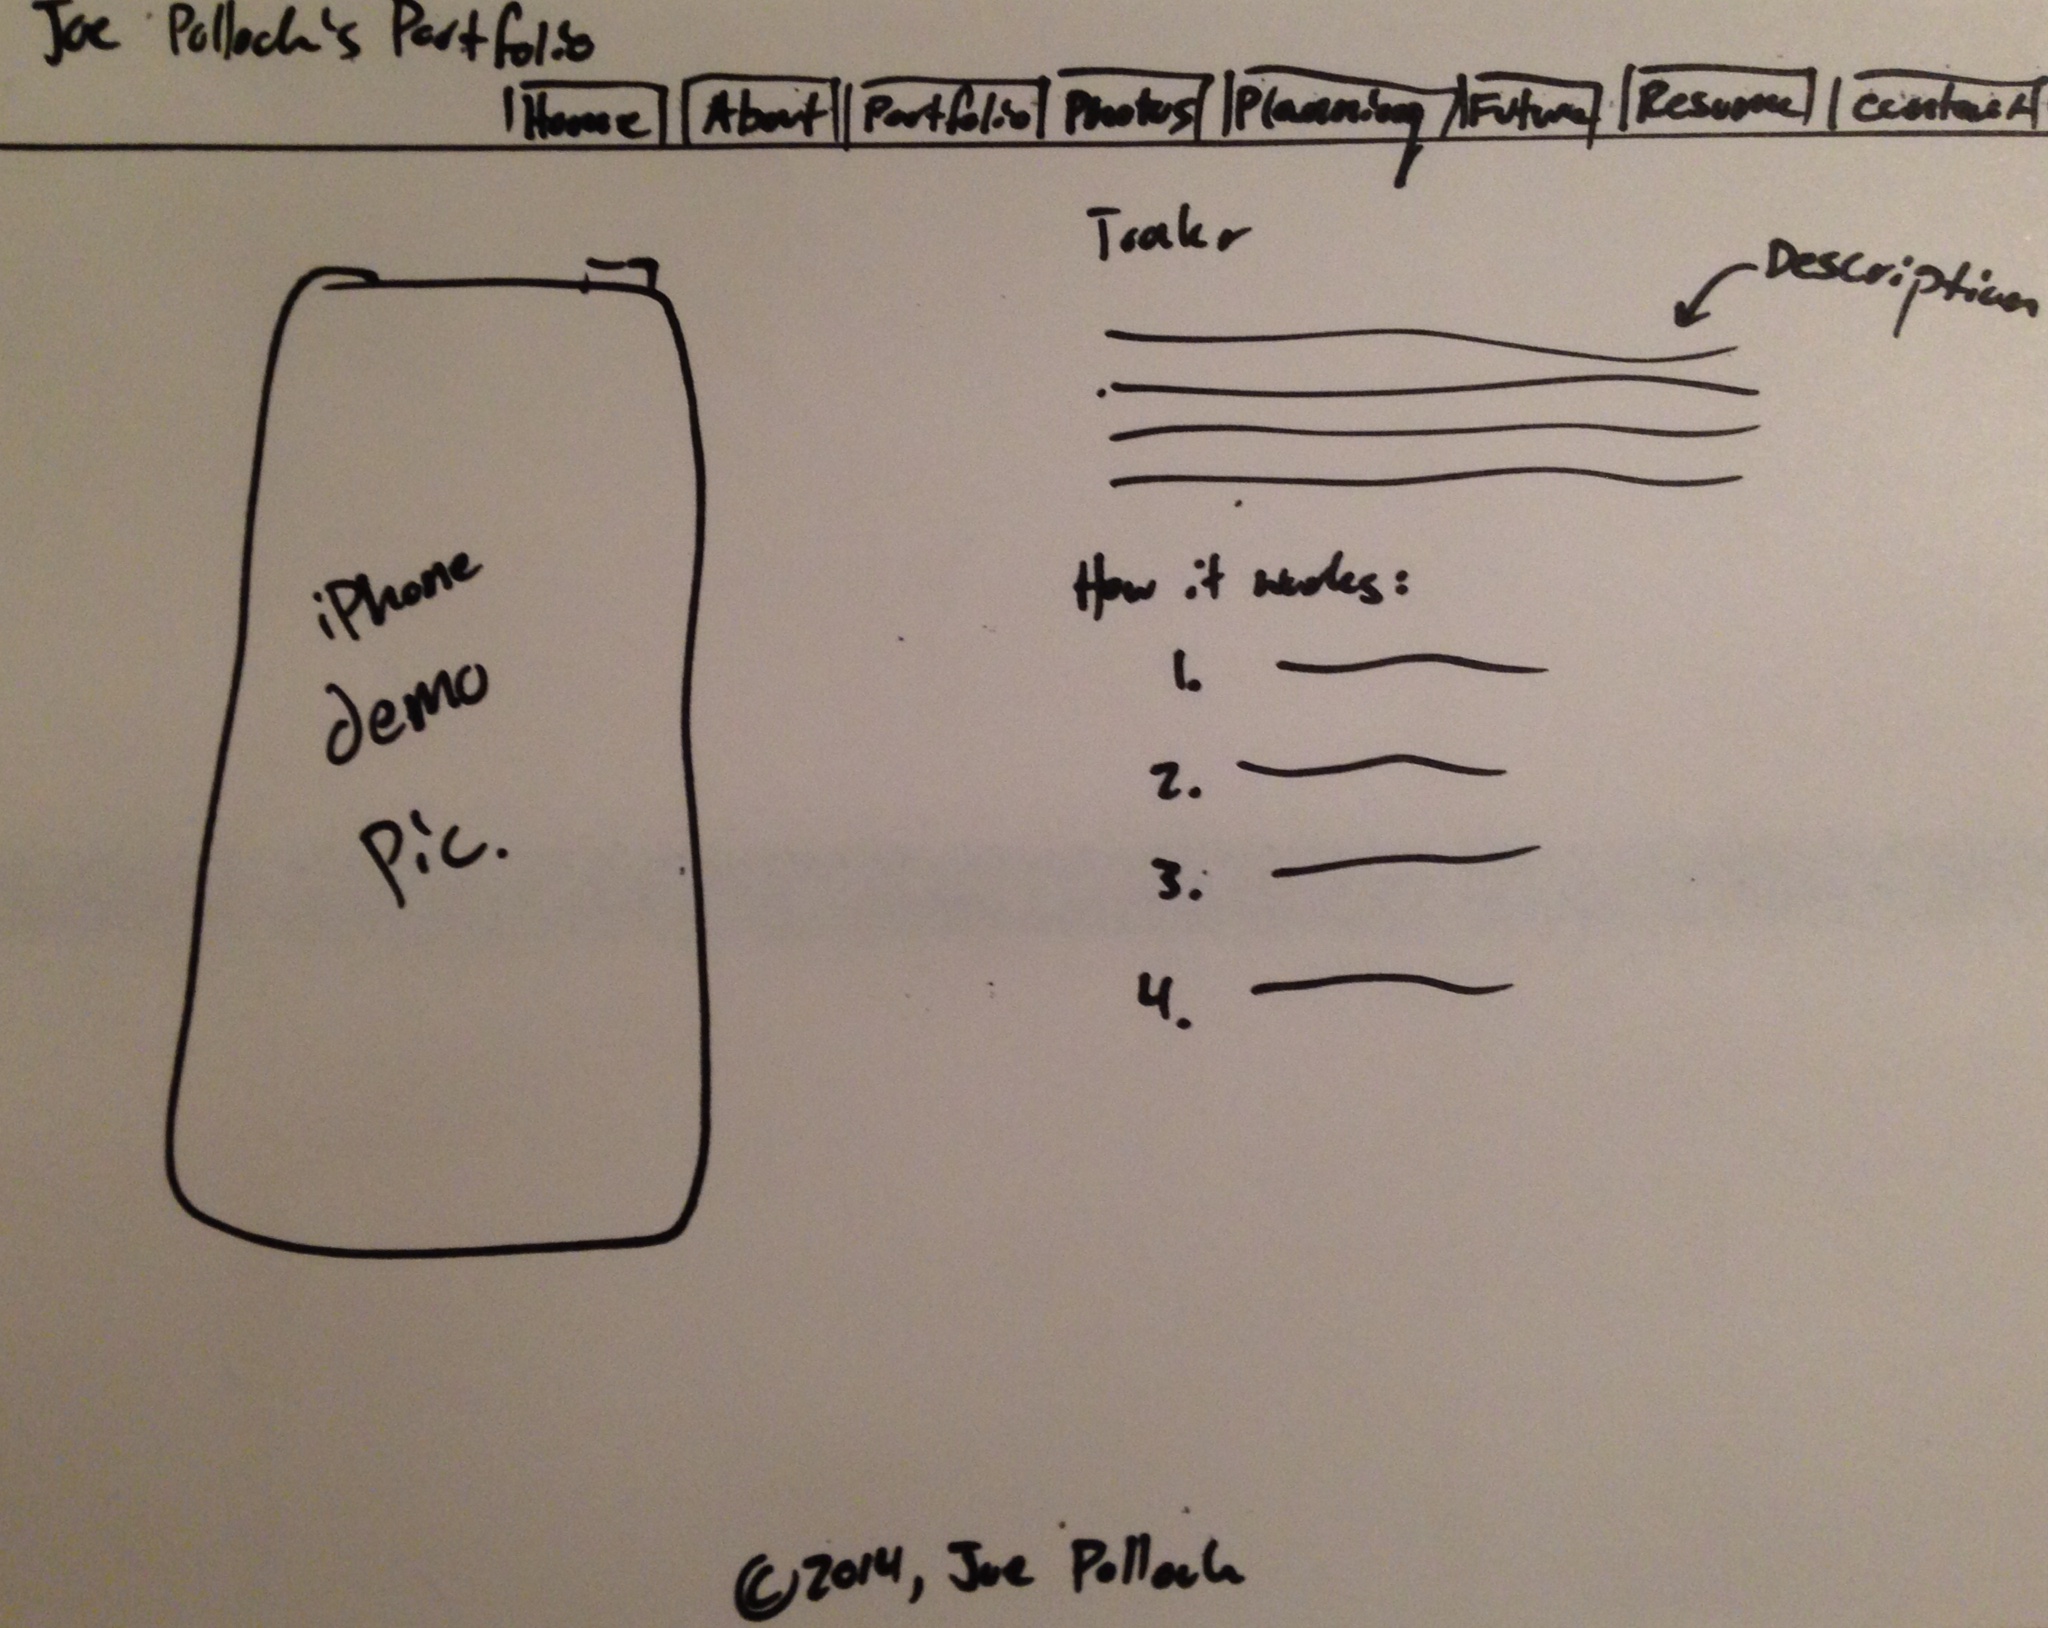 Joe Pollock's Portfolio
Home About Portfolio Photos Planning Future Resume Contact
Trakr
Description
How it works:
1.
2.
3.
4.
iPhone
demo
Pic.
©2014, Joe Pollock